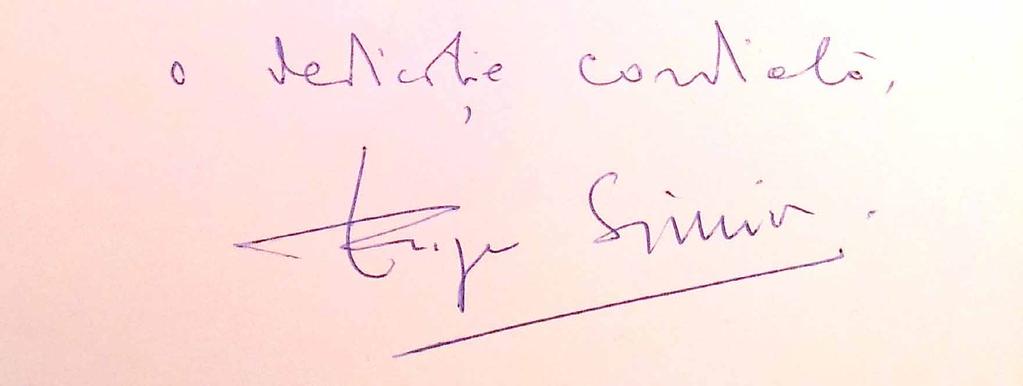 o dedicație cordială,
Eugen Simion